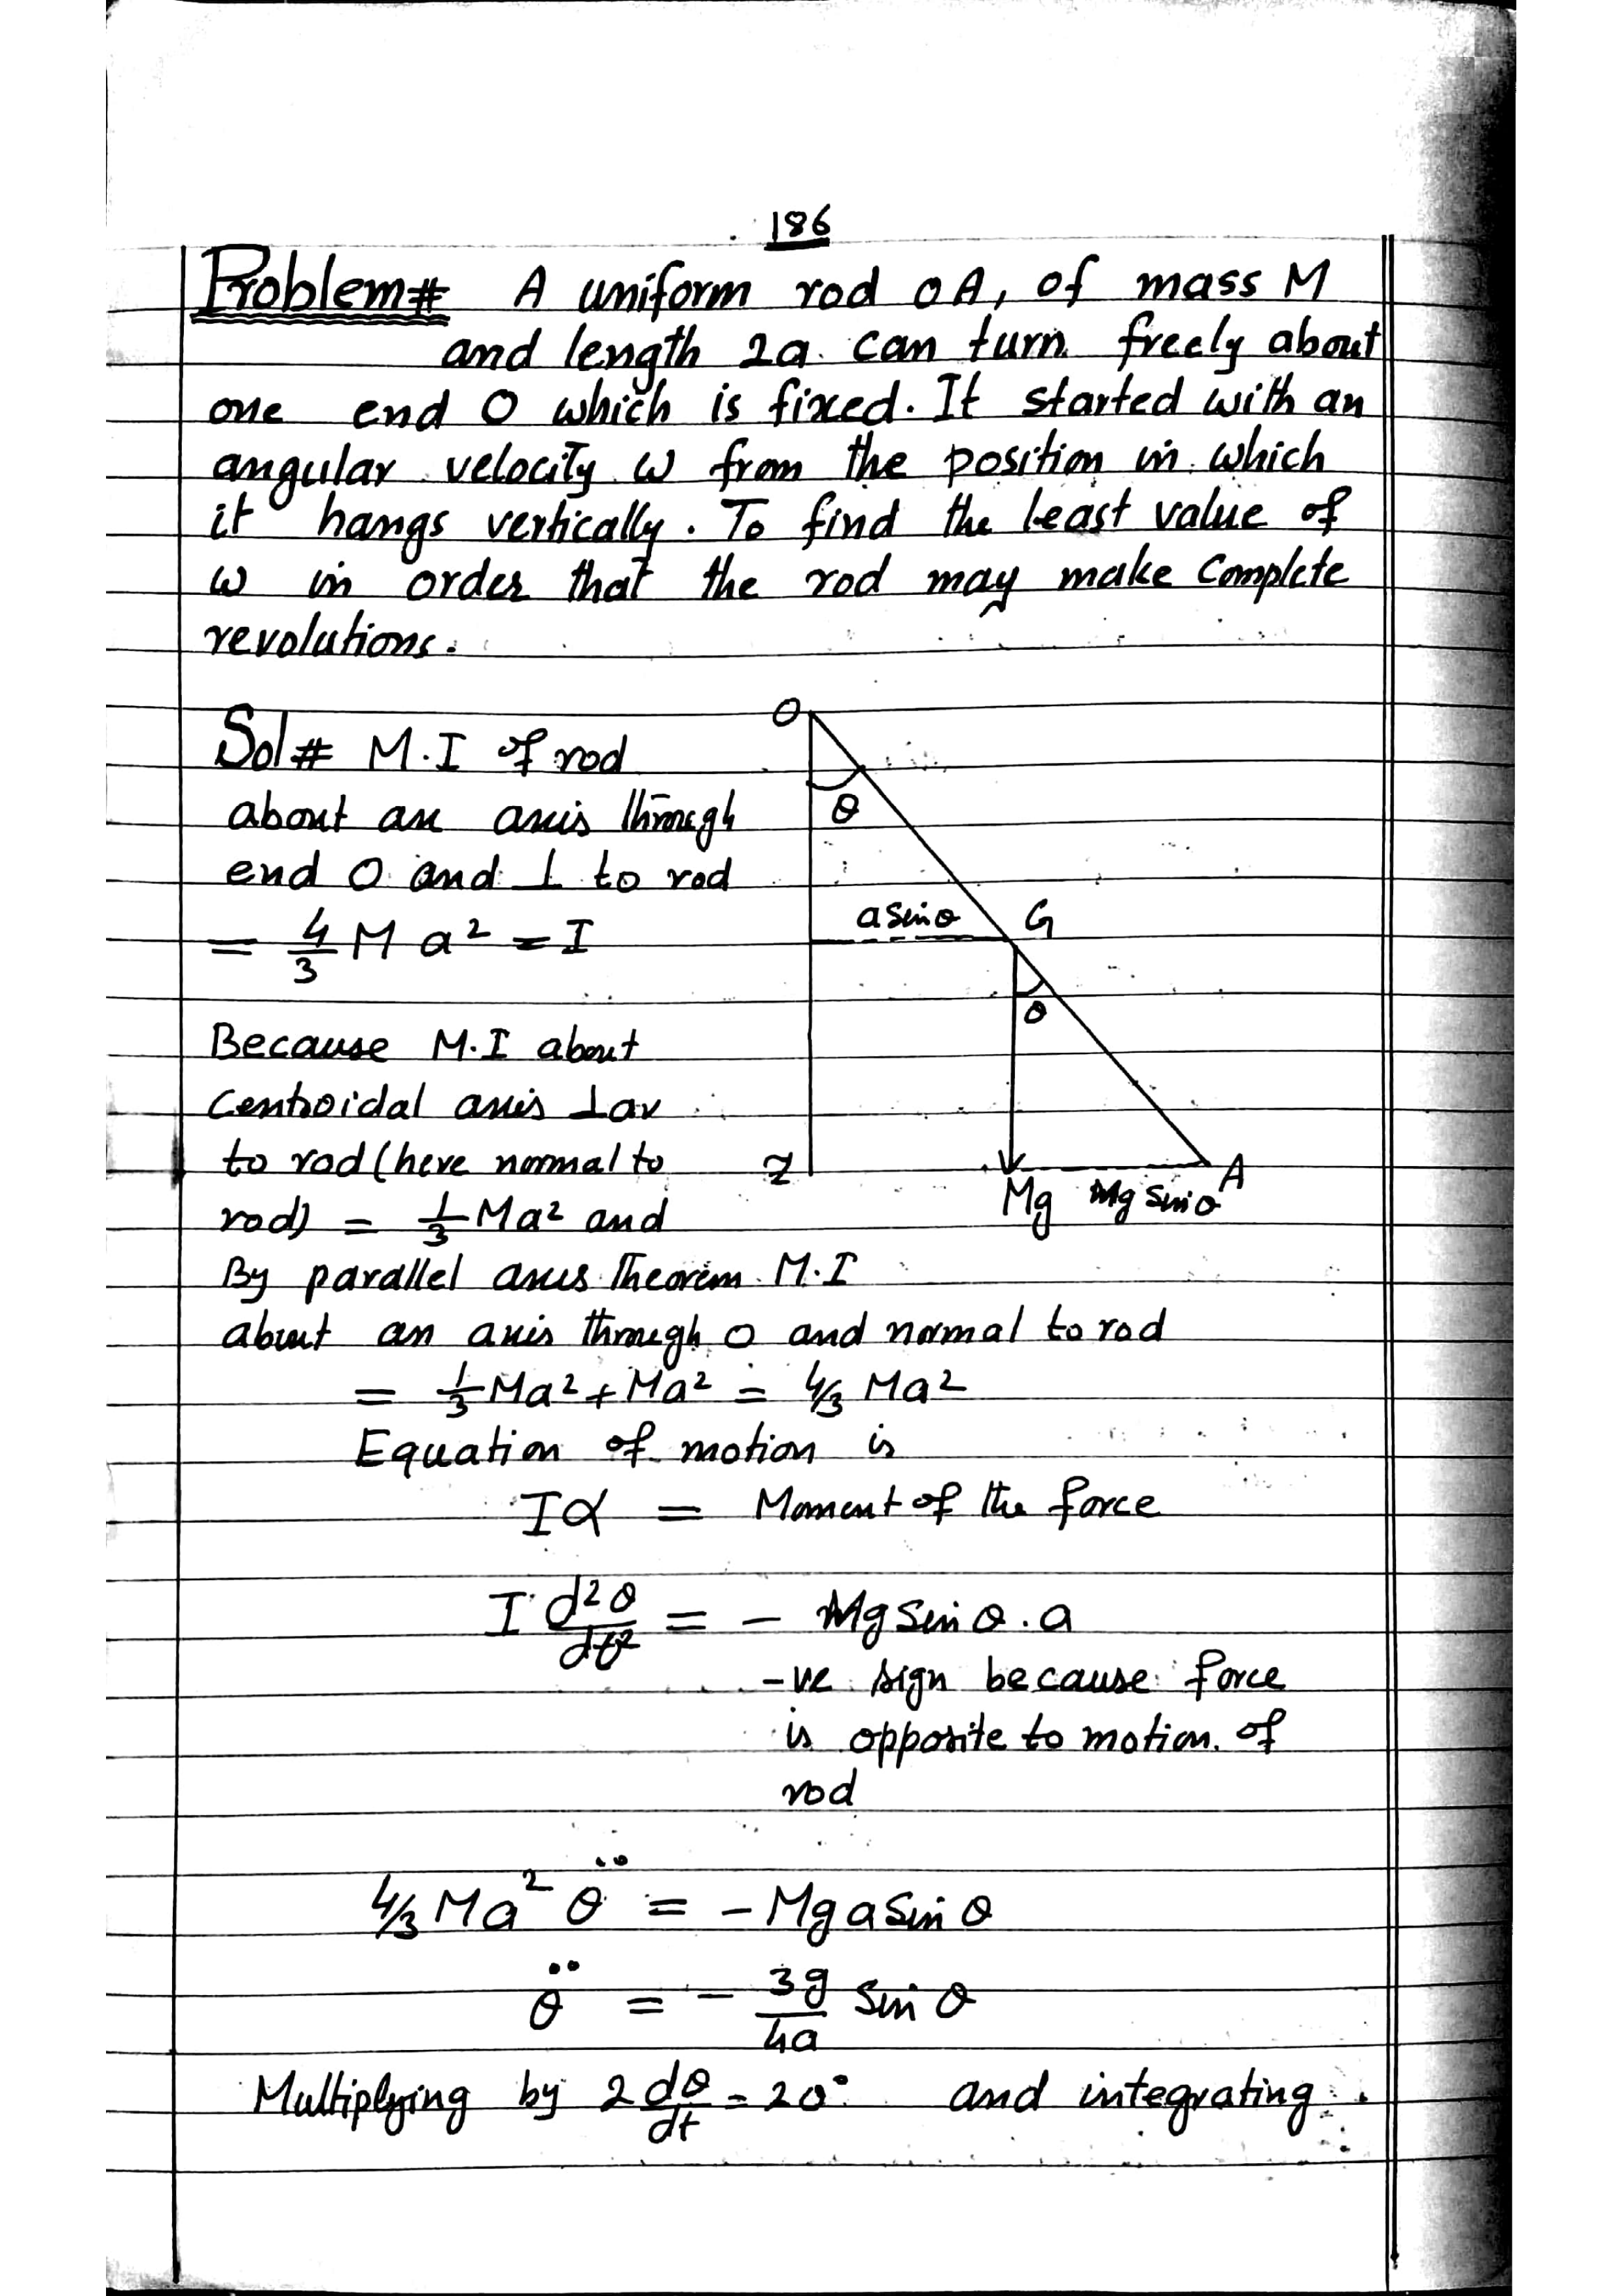 186
Problem# A uniform rod OA, of mass M
and length 2a can turn freely about
one end O which is fixed. It started with an
angular velocity ω from the position in which
it hangs vertically. To find the least value of
ω in order that the rod may make complete
revolutions.
Sol# M.I of rod
about an axis through
end O and ⊥ to rod
= 4/3 M a² = I
Because M.I about
Centroidal axis ⊥ar
to rod (here normal to
rod) = 1/3 Ma² and
By parallel axis Theorem M.I
about an axis through O and normal to rod
= 1/3 Ma² + Ma² = 4/3 Ma²
O
θ
a sin θ G
θ
Z
A
Mg Mg sin θ
Equation of motion is
Iα = Moment of the force
I d²θ/dt² = - Mg sin θ . a
-ve sign because force
is opposite to motion of
rod
4/3 Ma² θ̈ = - Mg a sin θ
θ̈ = - 3g/4a sin θ
Multiplying by 2 dθ/dt = 2θ̇ and integrating